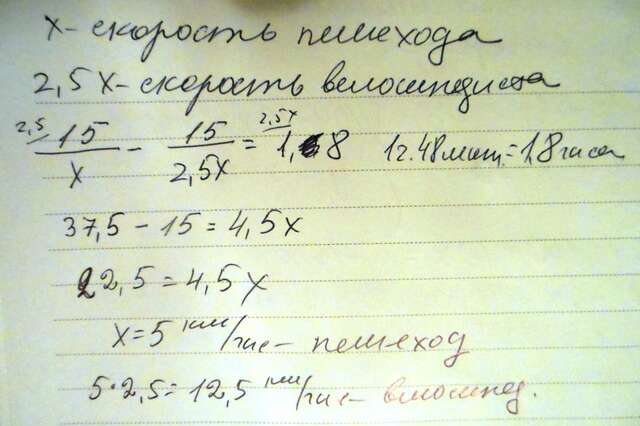 x - скорость пешехода
2,5x - скорость велосипедиста
2,5/ 15/x - 15/2,5x = 2,5x/ 1,8 1ч. 48мин. = 1,8 часа
37,5 - 15 = 4,5x
22,5 = 4,5x
x = 5 км/час - пешеход
5·2,5 = 12,5 км/час - велосипед.